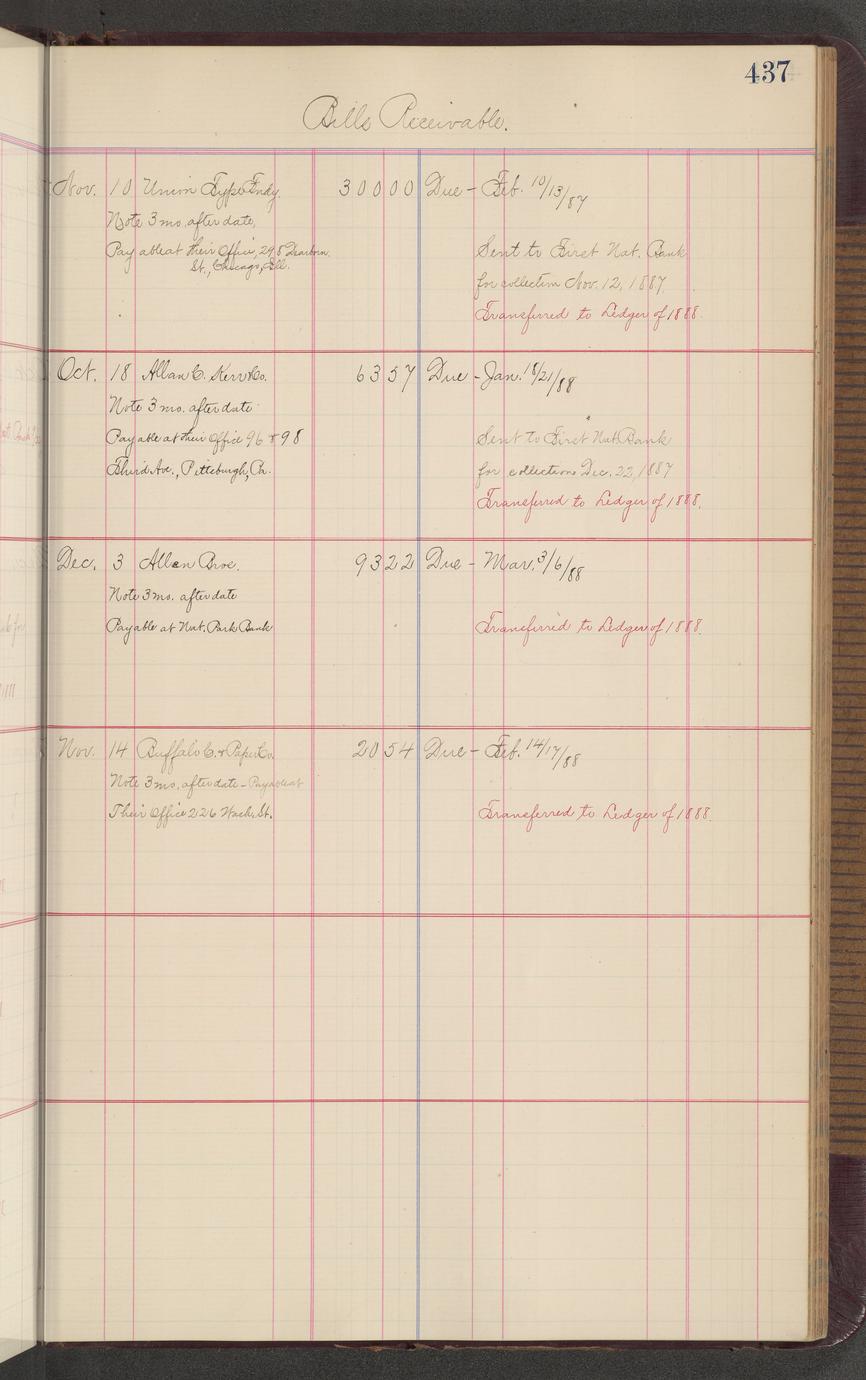 437
Bills Receivable.
Nov. 10 Union Type Fndy 30000 Due - Feb. 10/13/87
Note 3 mo. after date,
Payable at their Office, 298 Dearborn Sent to First Nat. Bank
St., Chicago, Ill.
for collection Nov. 12, 1887
Transferred to Ledger of 1888.
Oct. 18 Allan C. Kerr & Co. 6357 Due - Jan. 18/21/88
Note 3 mo. after date
Payable at their Office 96 & 98 Sent to First Nat. Bank
Third Ave., Pittsburgh, Pa. for collection Dec. 22, 1887
Transferred to Ledger of 1888.
Dec. 3 Allen Bros. 9322 Due - Mar. 3/6/88
Note 3 mo. after date
Payable at Nat. Park Bank Transferred to Ledger of 1888.
Nov. 14 Buffalo C. & Paper Co. 2054 Due - Feb. 14/17/88
Note 3 mo. after date - Payable at
Their Office 226 Wash. St. Transferred to Ledger of 1888.